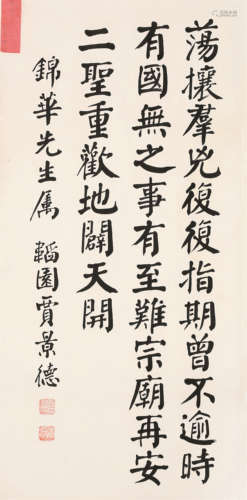 蕩攘羣兇復復指期曾不逾時
有國無之事有至難宗廟再安
二聖重歡地闢天開
錦華先生屬 韜園賈景德